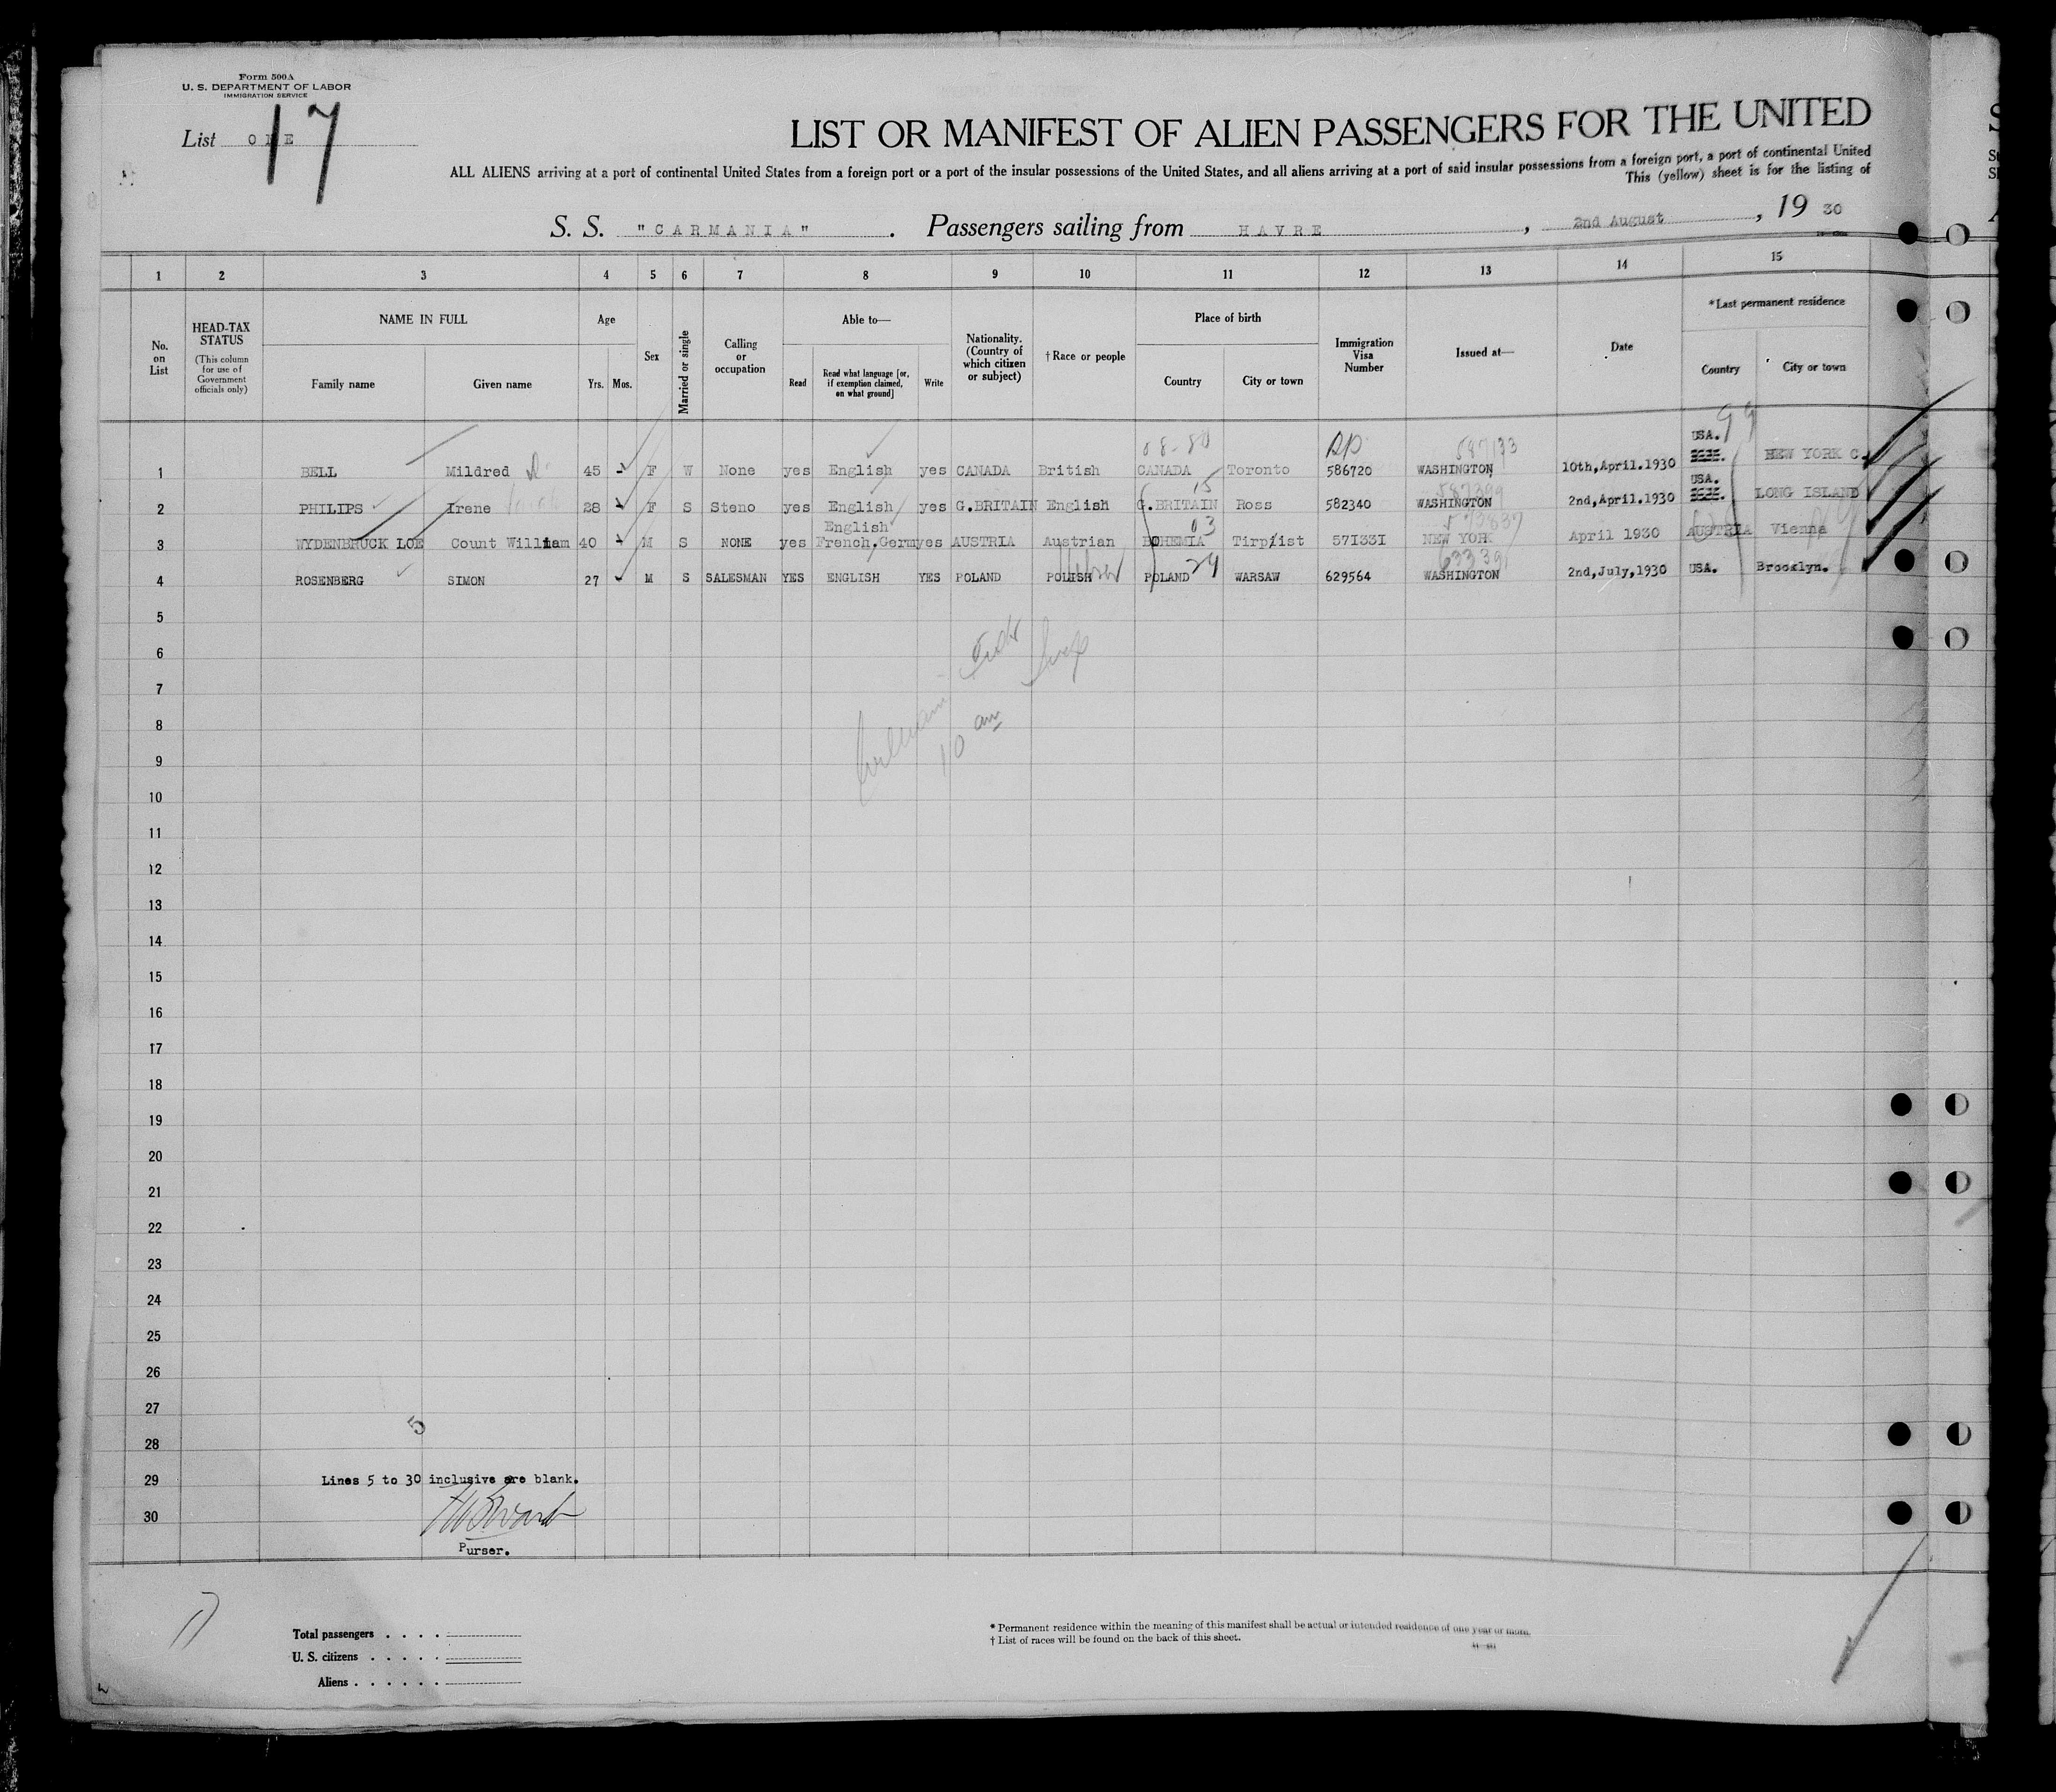 Form 500A
U. S. DEPARTMENT OF LABOR
IMMIGRATION SERVICE
List ONE
17
LIST OR MANIFEST OF ALIEN PASSENGERS FOR THE UNITED
ALL ALIENS arriving at a port of continental United States from a foreign port or a port of the insular possessions of the United States, and all aliens arriving at a port of said insular possessions from a foreign port, a port of continental United
This (yellow) sheet is for the listing of
S. S. "CARMANIA". Passengers sailing from HAVRE, 2nd August, 19 30
1 2 3 4 5 6 7 8 9 10 11 12 13 14 15
No. on List
HEAD-TAX STATUS
(This column for use of Government officials only)
NAME IN FULL
Family name Given name
Age
Yrs. Mos.
Sex
Married or single
Calling or occupation
Able to—
Read
Read what language [or, if exemption claimed, on what ground]
Write
Nationality. (Country of which citizen or subject)
† Race or people
Place of birth
Country City or town
Immigration Visa Number
Issued at—
Date
*Last permanent residence
Country City or town
99
08-80 587133 USA.
1 BELL Mildred 45 - F W None yes English yes CANADA British CANADA Toronto 586720 WASHINGTON 10th,April.1930 NEW YORK C.
15 USA.
2 PHILIPS Irene 28 - F S Steno yes English yes G.BRITAIN English G.BRITAIN Ross 582340 WASHINGTON 2nd,April.1930 LONG ISLAND
English 03
3 WYDENBRUCK LOE Count William 40 - M S NONE yes French.Germ yes AUSTRIA Austrian BOHEMIA Tirp/ist 571331 NEW YORK April 1930 AUSTRIA Vienna
63339
4 ROSENBERG SIMON 27 - M S SALESMAN YES ENGLISH YES POLAND POLISH POLAND 24 WARSAW 629564 WASHINGTON 2nd,July,1930 USA. Brooklyn.
5
6
7
8
10 am
9
10
11
12
13
14
15
16
17
18
19
20
21
22
23
24
25
26
27
5
28
29 Lines 5 to 30 inclusive are blank.
30
Purser.
Total passengers . . . .
U. S. citizens . . . . .
Aliens . . . . . .
* Permanent residence within the meaning of this manifest shall be actual or intended residence of one year or more.
† List of races will be found on the back of this sheet.